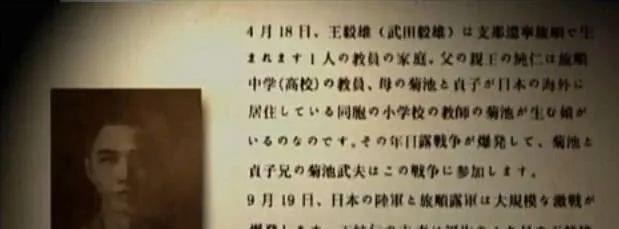 4月18日、王毅雄(武田毅雄)は支那遼寧旅順で生
まれます1人の教員の家庭。父の親王の純仁は旅順
中学(高校)の教員、母の菊池と貞子が日本の海外に
居住している同胞の小学校の教師の菊池が生む傾が
いるのなのです。その年日露戦争が爆発して、菊池と
貞子兄の菊池武夫はこの戦争に参加します。
9月19日、日本の陸軍と旅順露軍は大規模な激戦が